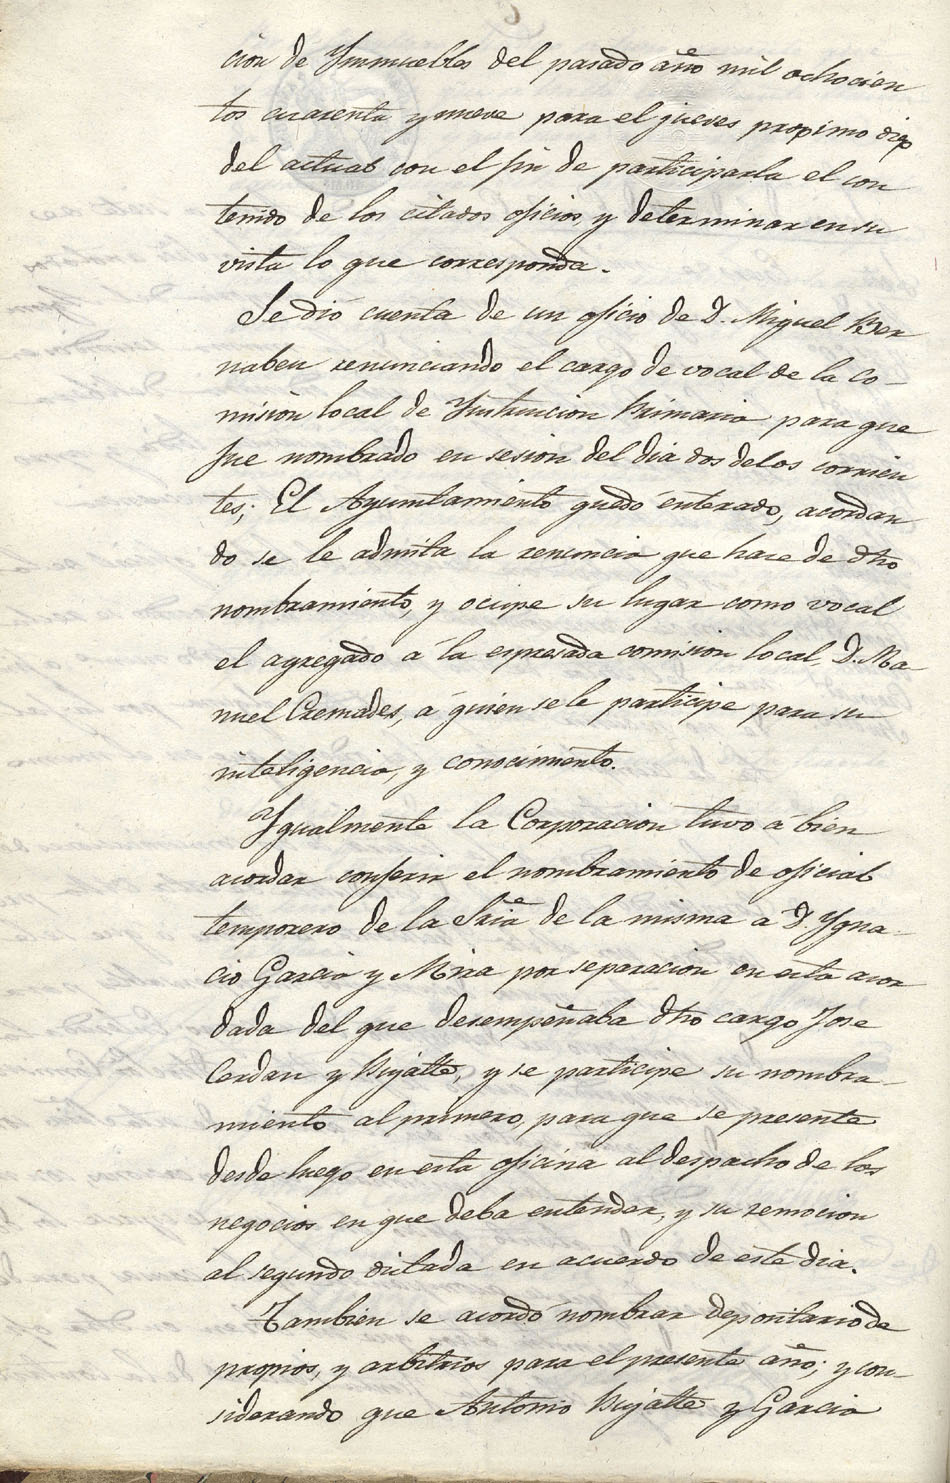 cion de Ymmuebles del pasado año mil ochocien
tos cuarenta y nueve para el jueves propimo diez
del actual con el fin de participarla el con
tenido de los citados oficios, y determinar en su
vista lo que corresponda.
Se dió cuenta de un oficio de D. Miguel Ber
nabeu renunciando el cargo de vocal de la Co-
mision local de Ynstruccion Primaria para que
fue nombrado en sesion del dia dos delos corrien
tes; El Ayuntamiento quedó enterado, acordan
do se le admita la renuncia que hace de dho
nombramiento, y ocupe su lugar como vocal
el agregado á la espresada comision local, D. Ma-
nuel Cremades, á quien se le participe para su
inteligencia, y conocimiento.
Ygualmente la Corporacion tuvo á bien
acordar conferir el nombramiento de oficial
temporero de la Sria de la misma a D. Ygna-
cio Garcia y Mira por separacion en esta acor
dada del que desempeñaba dho cargo Jose
Cerdan y Pujalte, y se participe su nombra-
miento al primero, para que se presente
desde luego en esta oficina al despacho de los
negocios en que deba entender, y su remocion
al segundo dictada en acuerdo de este dia.
Tambien se acordó nombrar depositario de
propios, y arbitrios para el presente año; y con-
siderando que Antonio Pujalte y Garcia